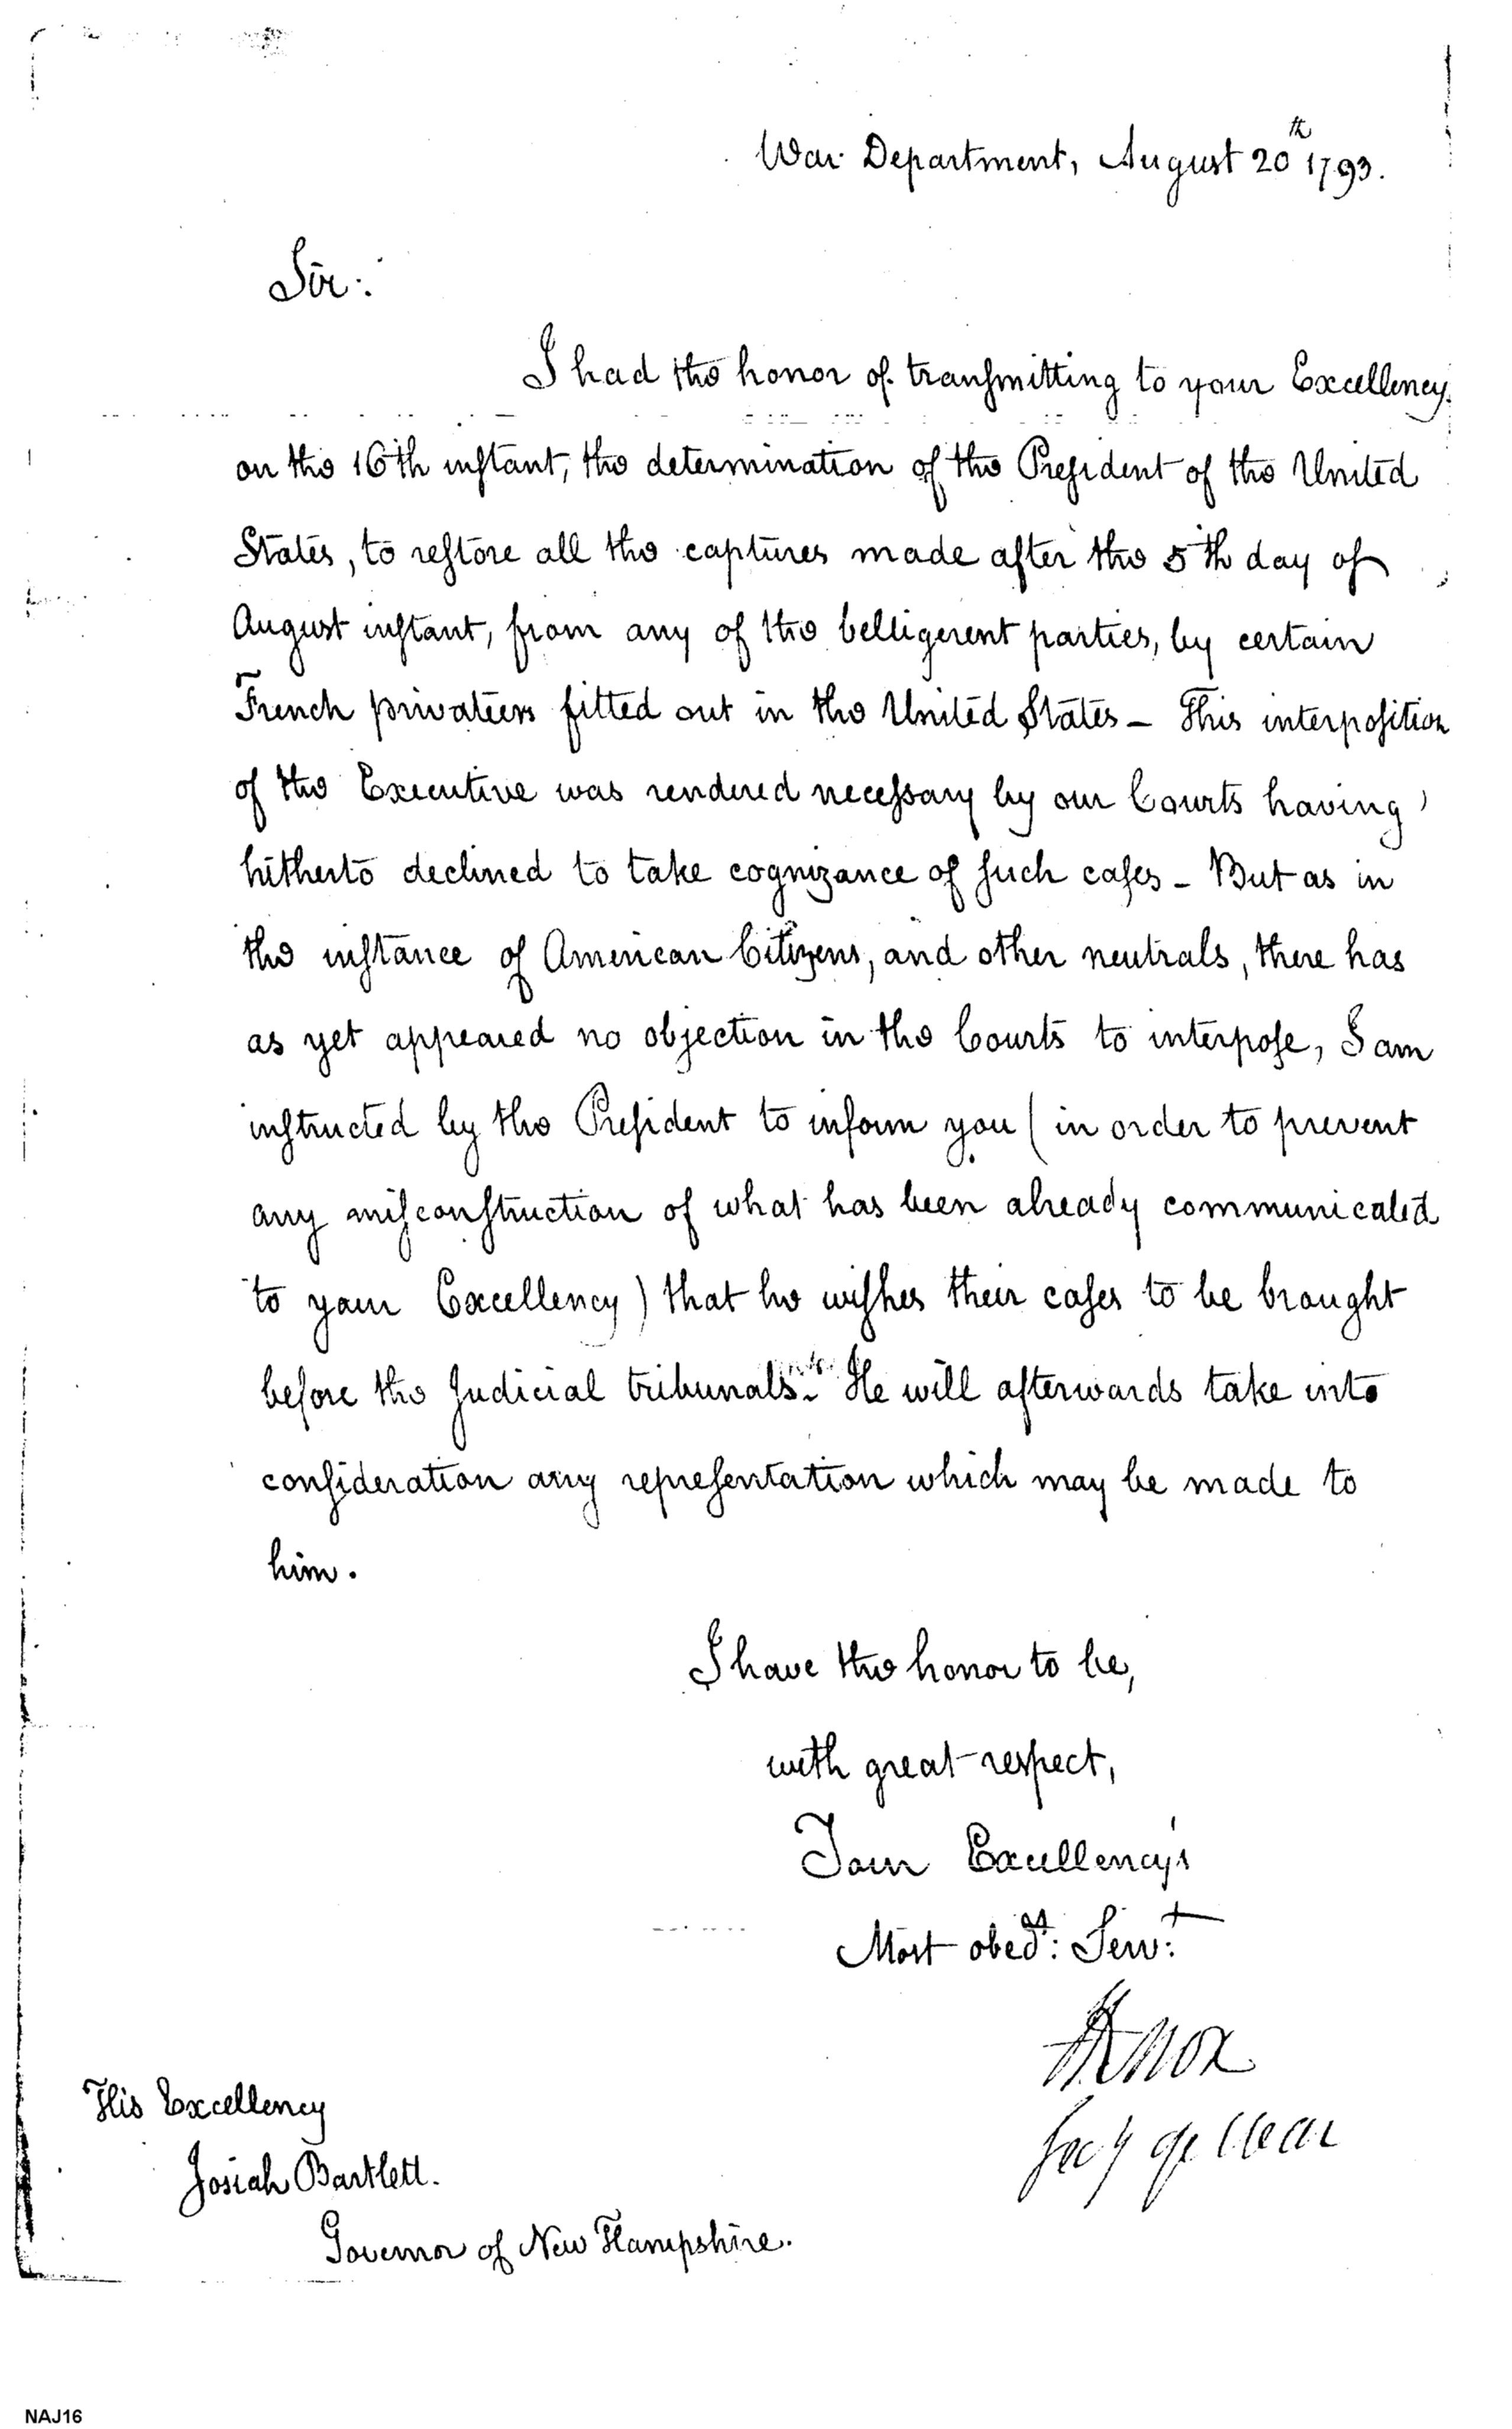 War Department, August 20th 1793.
Sir:
I had the honor of transmitting to your Excellency,
on the 16th instant, the determination of the President of the United
States, to restore all the captures made after the 5th day of
August instant, from any of the belligerent parties, by certain
French privateers fitted out in the United States — This interposition
of the Executive was rendered necessary by our Courts having
hitherto declined to take cognizance of such cases — But as in
the instance of American Citizens, and other neutrals, there has
as yet appeared no objection in the Courts to interpose, I am
instructed by the President to inform you (in order to prevent
any misconstruction of what has been already communicated
to your Excellency) that he wishes their cases to be brought
before the Judicial tribunals. He will afterwards take into
consideration any representation which may be made to
him.
I have the honor to be,
with great respect,
Your Excellency's
Most obedt: Servt:
HKnox
Secy of War
His Excellency
Josiah Bartlett.
Governor of New Hampshire.
NAJ16